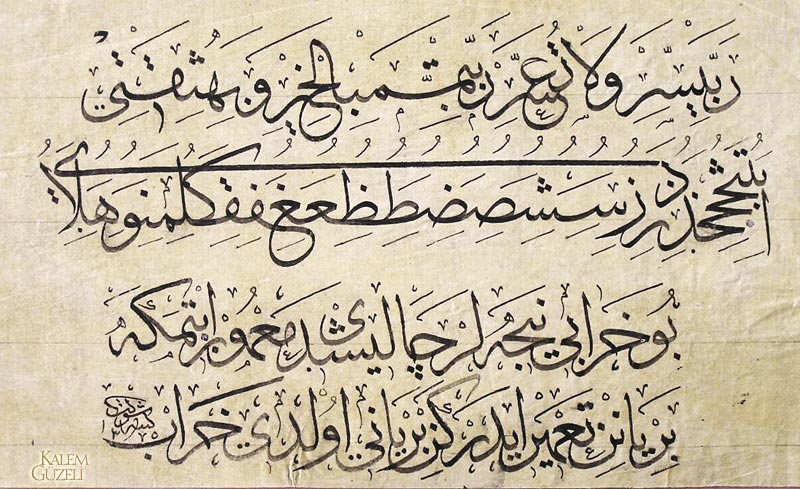 رب يسر ولا تعسر رب تمم بالخير وبه ثقتي
ا ب ت ث ج ح خ د ذ ر ز س ش ص ض ط ظ ع غ ف ق ك ل م ن و ه لا ي
بو خرابی نیجه لر چالیشدی معمور ایتمکه
بر یانن تعمیر ایدرکن بر یانی اولدی خراب
١٣٢٥
KALEM
GÜZELİ